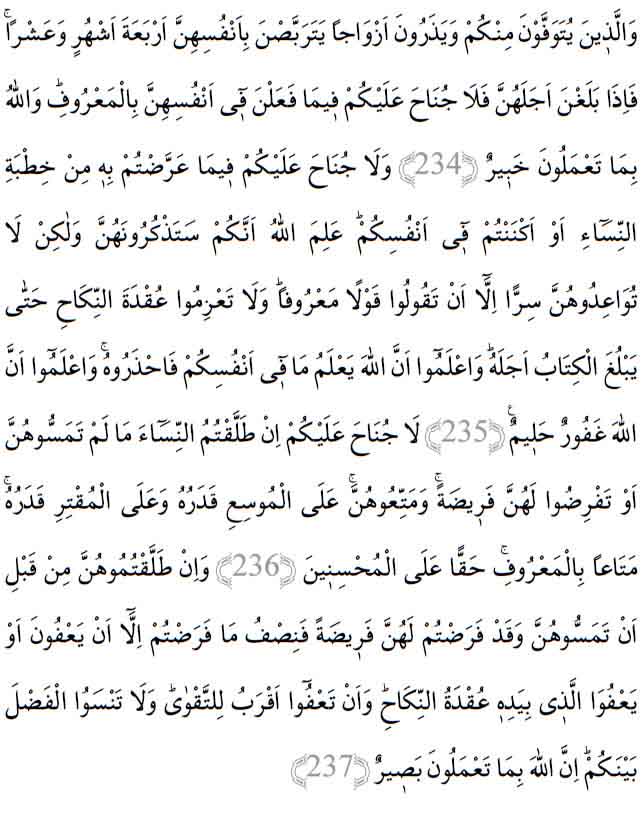 وَالَّذ۪ينَ يُتَوَفَّوْنَ مِنْكُمْ وَيَذَرُونَ اَزْوَاجاً يَتَرَبَّصْنَ بِاَنْفُسِهِنَّ اَرْبَعَةَ اَشْهُرٍ وَعَشْراًۚ
فَاِذَا بَلَغْنَ اَجَلَهُنَّ فَلَا جُنَاحَ عَلَيْكُمْ ف۪يمَا فَعَلْنَ ف۪ٓي اَنْفُسِهِنَّ بِالْمَعْرُوفِۜ وَاللّٰهُ
بِمَا تَعْمَلُونَ خَب۪يرٌ ﴿234﴾ وَلَا جُنَاحَ عَلَيْكُمْ ف۪يمَا عَرَّضْتُمْ بِه۪ مِنْ خِطْبَةِ
النِّسَٓاءِ اَوْ اَكْنَنْتُمْ ف۪ٓي اَنْفُسِكُمْۜ عَلِمَ اللّٰهُ اَنَّكُمْ سَتَذْكُرُونَهُنَّ وَلٰكِنْ لَا
تُوَاعِدُوهُنَّ سِراًّ اِلَّٓا اَنْ تَقُولُوا قَوْلًا مَعْرُوفاًۜ وَلَا تَعْزِمُوا عُقْدَةَ النِّكَاحِ حَتّٰى
يَبْلُغَ الْكِتَابُ اَجَلَهُۜ وَاعْلَمُٓوا اَنَّ اللّٰهَ يَعْلَمُ مَا ف۪ٓي اَنْفُسِكُمْ فَاحْذَرُوهُۚ وَاعْلَمُٓوا اَنَّ
اللّٰهَ غَفُورٌ حَل۪يمٌ۟ ﴿235﴾ لَا جُنَاحَ عَلَيْكُمْ اِنْ طَلَّقْتُمُ النِّسَٓاءَ مَا لَمْ تَمَسُّوهُنَّ
اَوْ تَفْرِضُوا لَهُنَّ فَر۪يضَةًۚ وَمَتِّعُوهُنَّۚ عَلَى الْمُوسِعِ قَدَرُهُ وَعَلَى الْمُقْتِرِ قَدَرُهُۚ
مَتَاعاً بِالْمَعْرُوفِۚ حَقًّا عَلَى الْمُحْسِن۪ينَ ﴿236﴾ وَاِنْ طَلَّقْتُمُوهُنَّ مِنْ قَبْلِ
اَنْ تَمَسُّوهُنَّ وَقَدْ فَرَضْتُمْ لَهُنَّ فَر۪يضَةً فَنِصْفُ مَا فَرَضْتُمْ اِلَّٓا اَنْ يَعْفُونَ اَوْ
يَعْفُوَا الَّذ۪ي بِيَدِه۪ عُقْدَةُ النِّكَاحِۜ وَاَنْ تَعْفُٓوا اَقْرَبُ لِلتَّقْوٰىۜ وَلَا تَنْسَوُا الْفَضْلَ
بَيْنَكُمْۜ اِنَّ اللّٰهَ بِمَا تَعْمَلُونَ بَص۪يرٌ ﴿237﴾